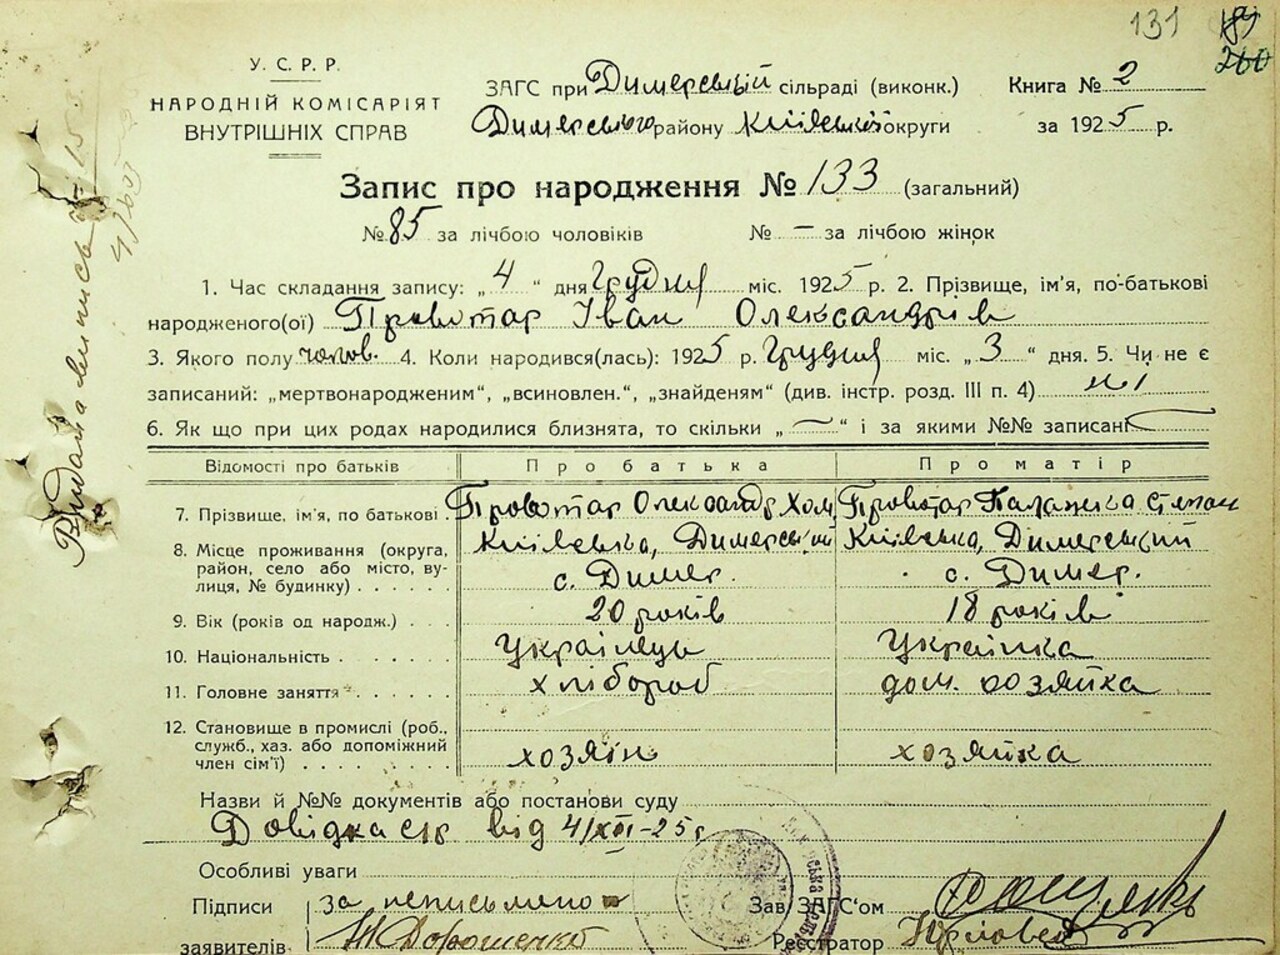 131
260
У. С. Р. Р.
НАРОДНІЙ КОМІСАРІЯТ
ВНУТРІШНІХ СПРАВ
ЗАГС при Димерській сільраді (виконк.)
Димерського району Київської округи
Книга № 2
за 1925 р.
Запис про народження № 133 (загальний)
№ 85 за лічбою чоловіків № — за лічбою жінок
1. Час складання запису: „ 4 “ дня Грудня міс. 1925 р. 2. Прізвище, ім'я, по-батькові
народженого(ої) Провотар Іван Олександрів
3. Якого полу чолов. 4. Коли народився(лась): 1925 р. Грудня міс. „ 3 “ дня. 5. Чи не є
записаний: „мертвонародженим“, „всиновлен.“, „знайденям“ (див. інстр. розд. III п. 4) ні
6. Як що при цих родах народилися близнята, то скільки „ — “ і за якими №№ записані —
Відомості про батьків Про батька Про матір
7. Прізвище, ім'я, по батькові . Провотар Олександр Хом. Провотар Палажка Степан
8. Місце проживання (округа, Київська, Димерський Київська, Димерський
район, село або місто, ву-
лиця, № будинку) . . . . . . с. Димер. с. Димер.
9. Вік (років од народж.) . . . 20 років 18 років
10. Національність . . . . . . Українець Українка
11. Головне заняття . . . . . . хлібороб дом. хозяйка
12. Становище в промислі (роб.,
служб., хаз. або допоміжний
член сім'ї) . . . . . . . . . хозяїн хозяйка
Назви й №№ документів або постанови суду
Довідка с/р від 4/XII-25 г
Особливі уваги
Підписи за неписьмено
заявителів Дорошенко
Зав. ЗАГС'ом
Реєстратор
Видана випись